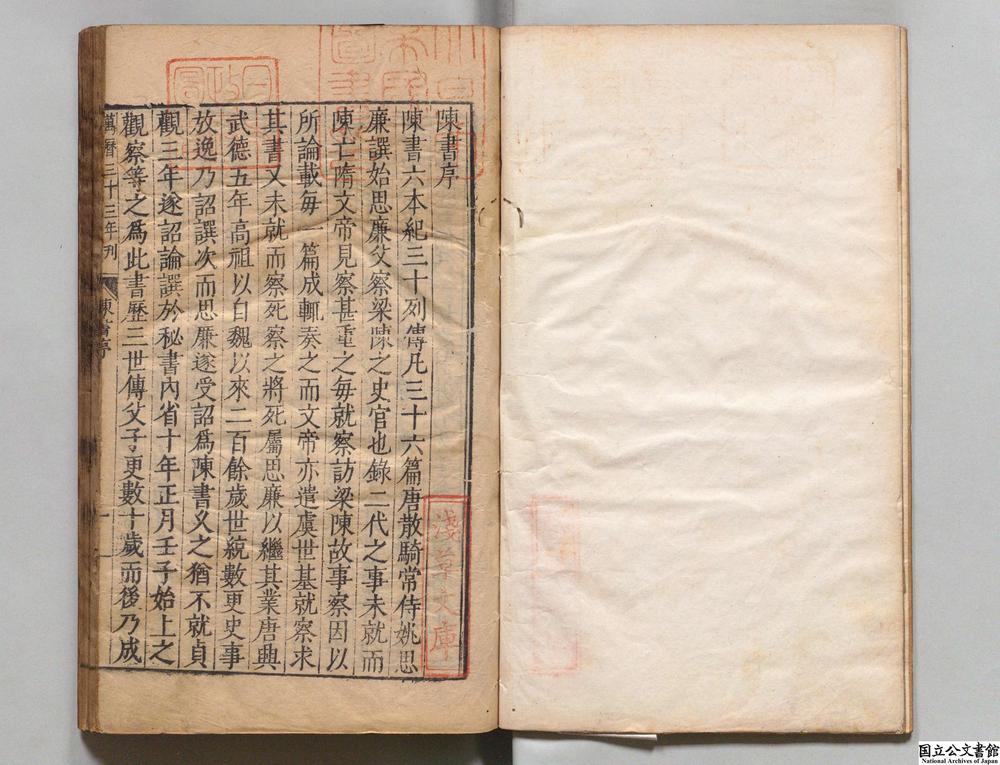 陳書序
陳書六本紀三十列傳凡三十六篇唐散騎常侍姚思
廉譔始思廉父察梁陳之史官也錄二代之事未就而
陳亡隋文帝見察甚重之毎就察訪梁陳故事察因以
所論載毎一篇成輒奏之而文帝亦遣虞世基就察求
其書又未就而察死察之將死屬思廉以繼其業唐興
武德五年高祖以自魏以來二百餘歲世統數更史事
放逸乃詔譔次而思廉遂受詔爲陳書久之猶不就貞
觀三年遂詔論譔於秘書內省十年正月壬子始上之
觀察等之爲此書歷三世傳父子更數十歲而後乃成
萬曆三十三年刊
陳書序
一
淺草文庫
国立公文書館
National Archives of Japan